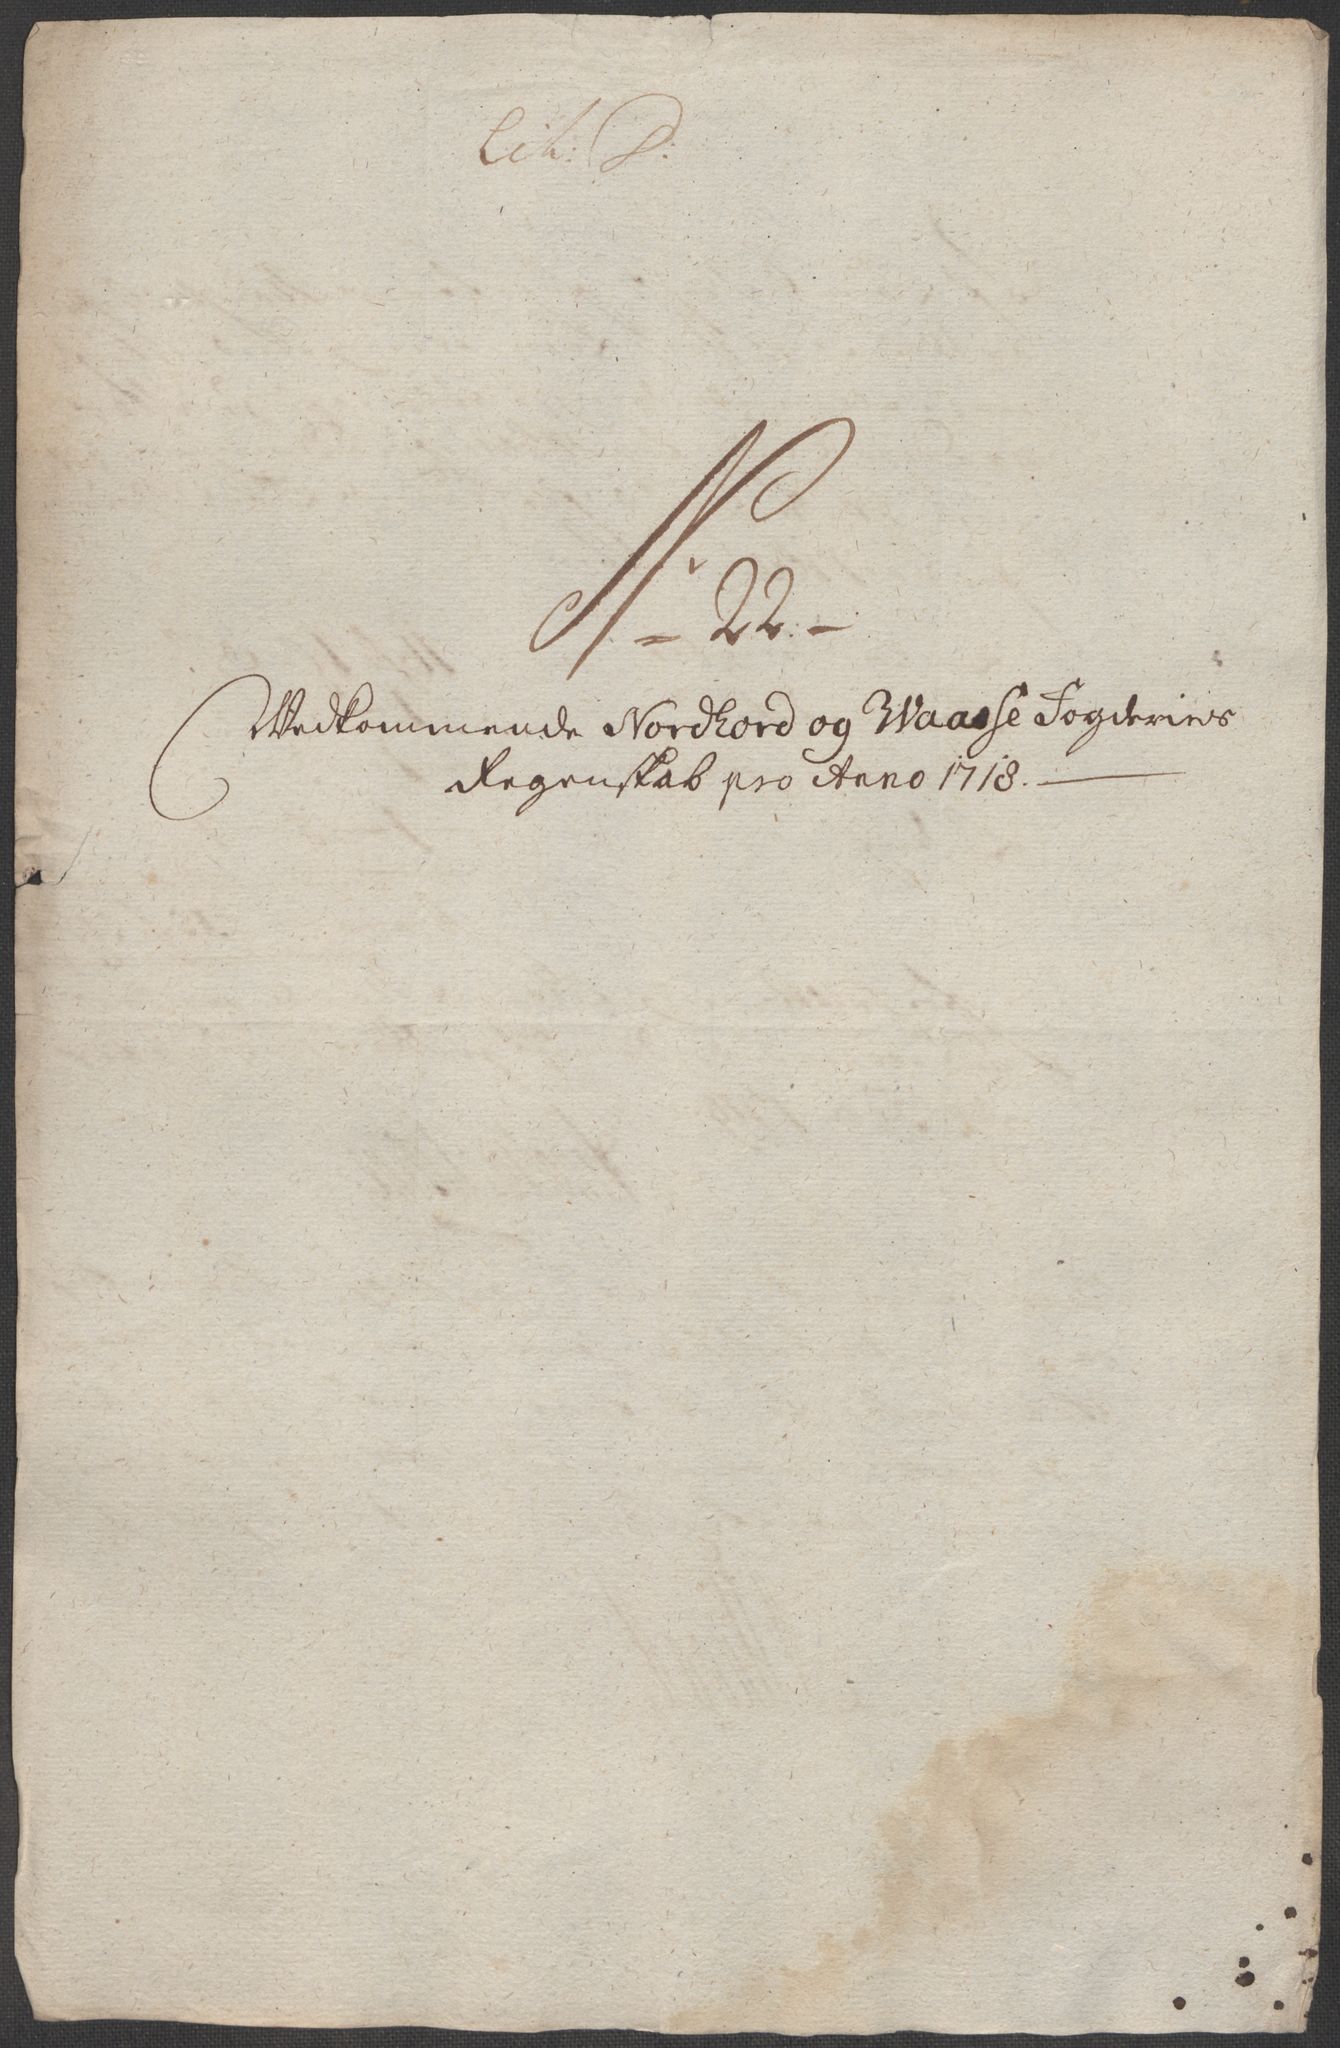 Lit: D:
No 22. –
Vedkommende Nordhord og Waasse Fogderies
Regenskab pro Anno 1718. –